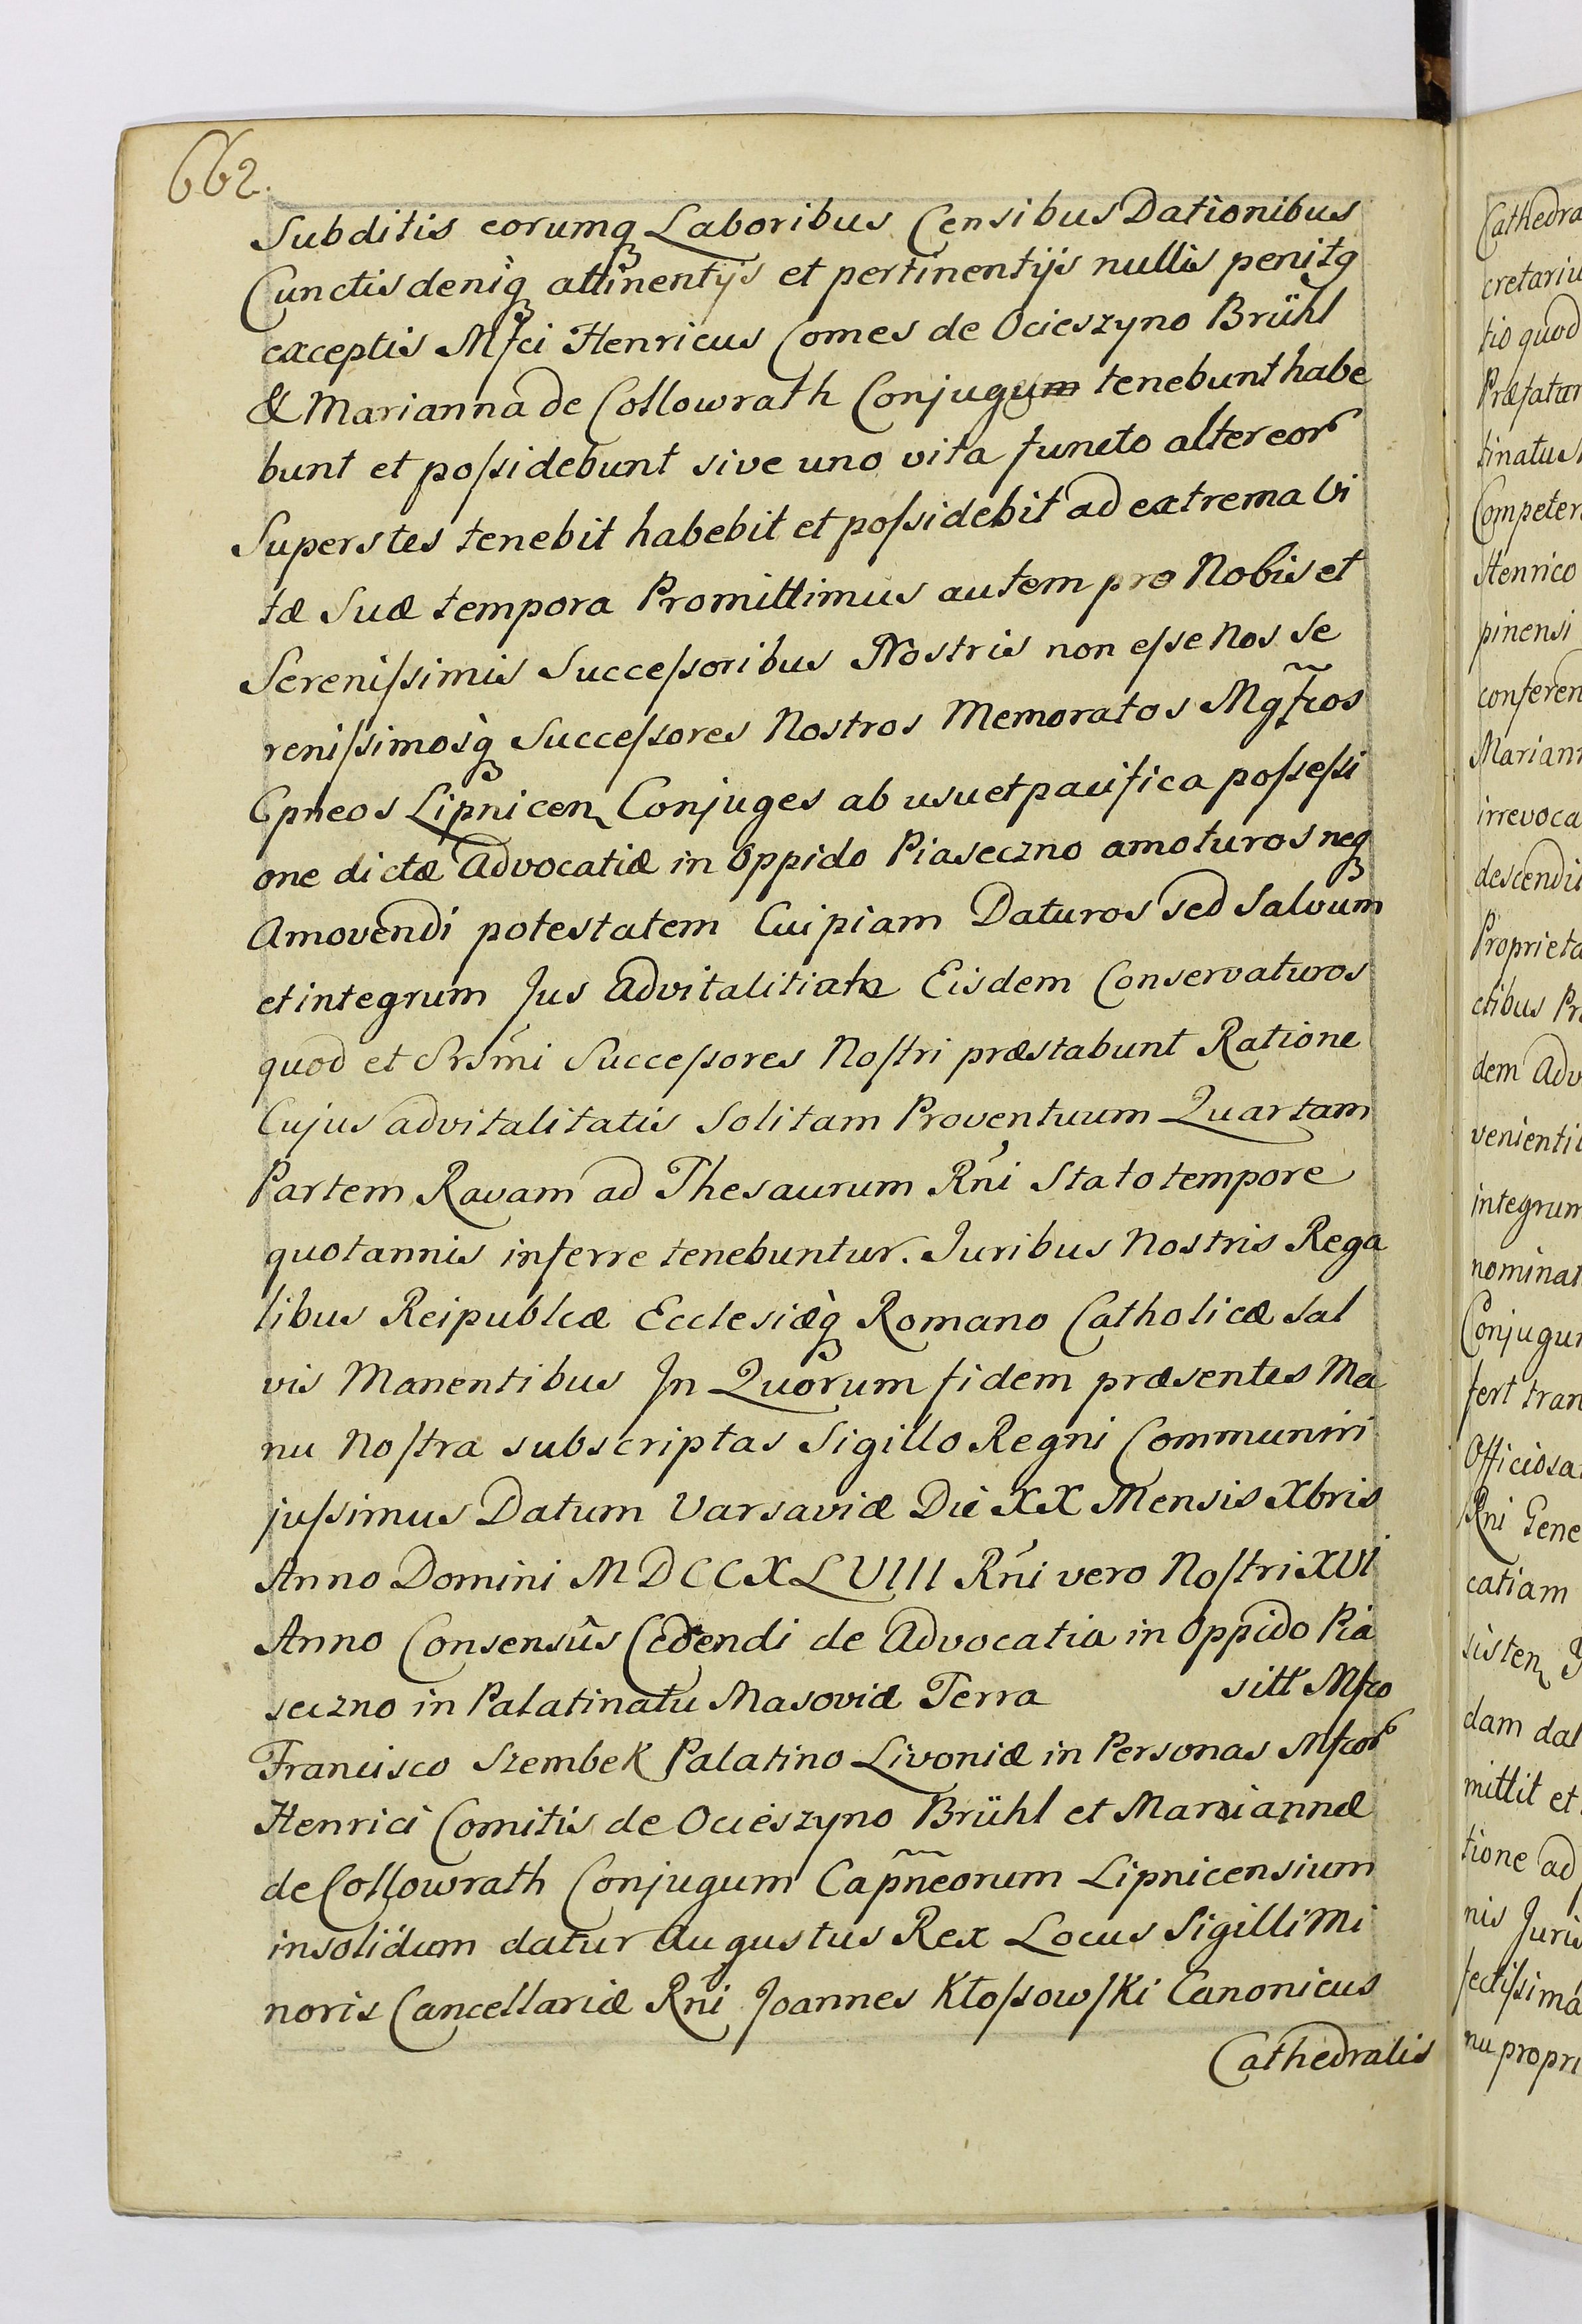 662.
Subditis eorumq Laboribus Censibus Dationibus
Cunctis deniq attinentijs et pertinentijs nullis penitq
exceptis Mfci Henricus Comes de Ocieszyno Brühl
& Marianna de Collowrath Conjugum tenebunt habe
bunt et poſsidebunt sive uno vita functo alter eor
Superstes tenebit habebit et poſsidebit ad extrema Vi
tæ Suæ tempora Promittimus autem pro Nobis et
Sereniſsimis Succeſsoribus Nostris non eſse Nos Se
reniſsimosq Succeſsores Nostros Memoratos Mgfcos
Cpneos Lipnicen Conjuges ab usu et pacifica poſseſsi
one dictæ Advocatiæ in Oppido Piaseczno amoturos neq
Amovendi potestatem Cuipiam Daturos sed Salvum
et integrum Jus Advitalitiatq Eisdem Conservaturos
quod et Srsmi Succeſsores Noſtri præstabunt Ratione
Cujus advitalitatis Solitam Proventuum Quartam
Partem Ravam ad Thesaurum Rni Stato tempore
quotannis inferre tenebuntur. Juribus Nostris Rega
libus Reipublcæ Ecclesiæq Romano Catholicæ Sal
vis Manentibus In Quorum fidem præsentes Ma
nu Noſtra subscriptas Sigillo Regni Communiri
juſsimus Datum Varsaviæ Die XX Mensis Xbris
Anno Domini MDCCXLVIII Rni vero Noſtri XVI
Anno Consensûs Cedendi de Advocatia in Oppido Pia
seczno in Palatinatu Masoviæ Terra sitt Mfco
Francisco Szembek Palatino Livoniæ in Personas Mfcor
Henrici Comitis de Ocieszyno Brühl et Mariannæ
de Collowrath Conjugum Capneorum Lipnicensium
insolidum datur Augustus Rex Locus Sigilli Mi
noris Cancellariæ Rni Joannes Kłoſsowſki Canonicus
Cathedralis